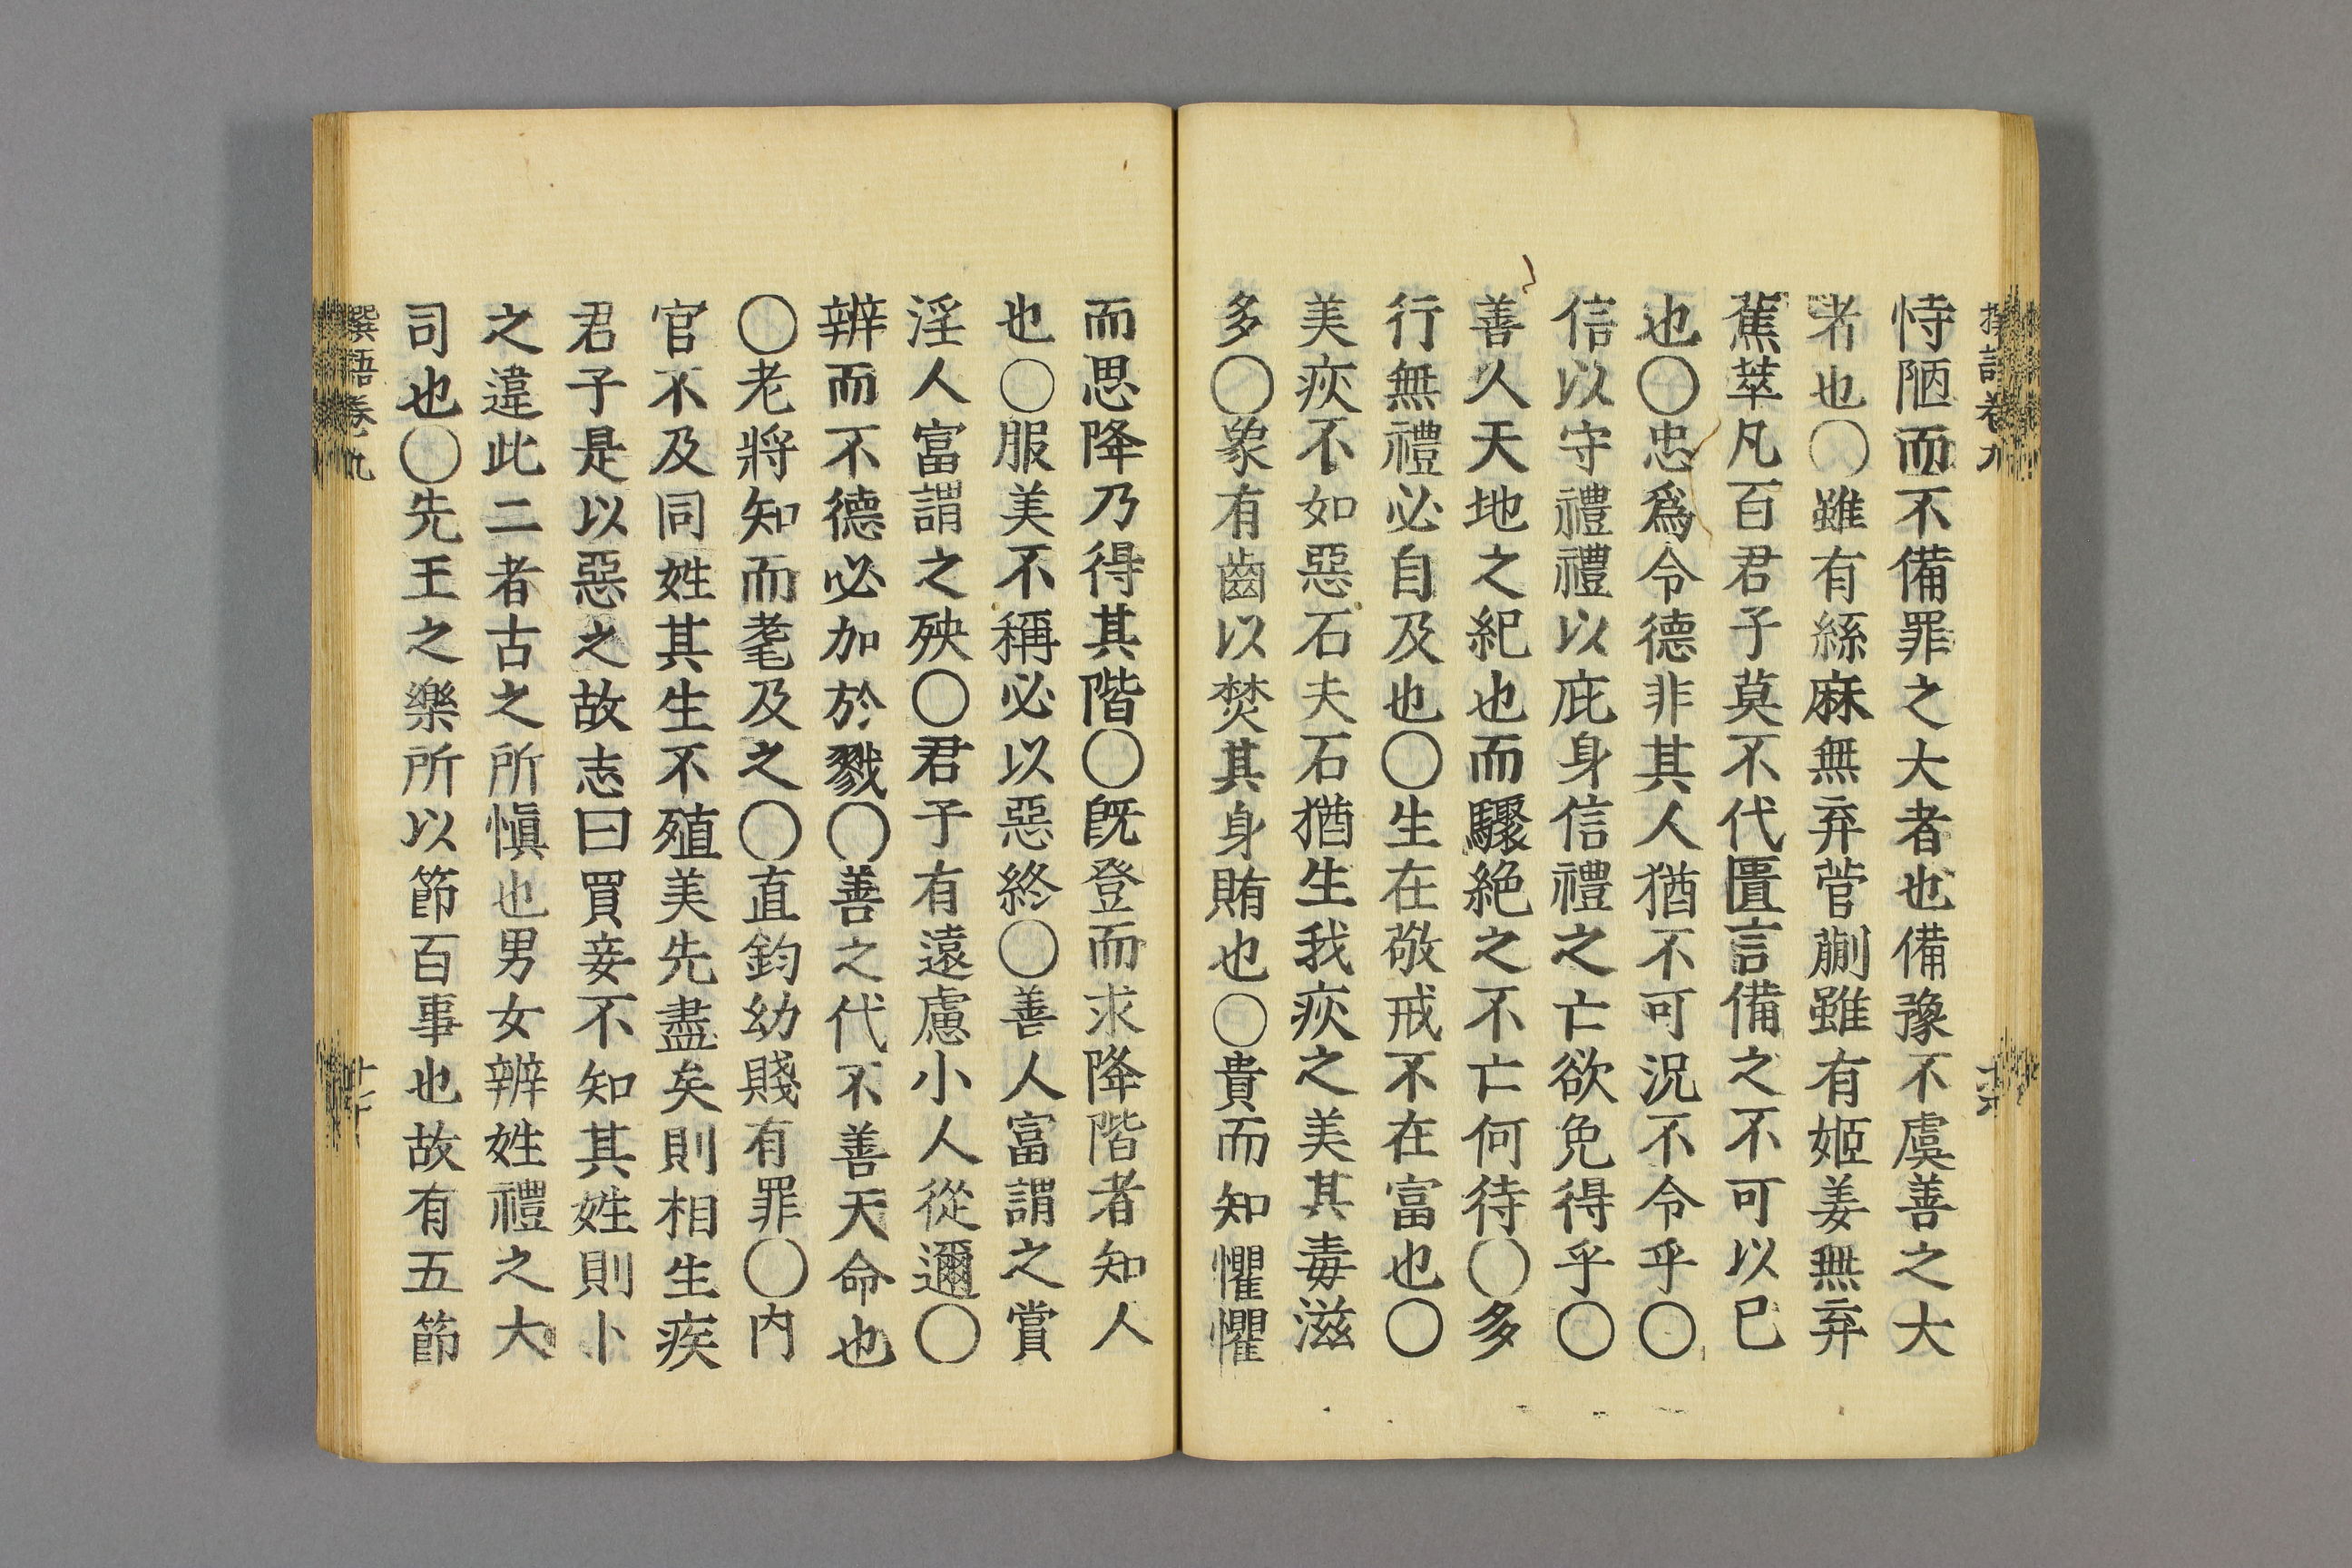 恃陋而不備罪之大者也備豫不虞善之大
者也〇雖有絲麻無弃菅蒯雖有姬姜無弃
蕉萃凡百君子莫不代匱言備之不可以已
也〇忠爲令德非其人猶不可況不令乎〇
信以守禮禮以庇身信禮之亡欲免得乎〇
善人天地之紀也而驟絕之不亡何待〇多
行無禮必自及也〇生在敬戒不在富也〇
美疢不如惡石夫石猶生我疢之美其毒滋
多〇象有齒以焚其身賄也〇貴而知懼懼
而思降乃得其階〇旣登而求降階者知人
也〇服美不稱必以惡終〇善人富謂之賞
淫人富謂之殃〇君子有遠慮小人從邇〇
辨而不德必加於戮〇善之代不善天命也
〇老將知而耄及之〇直鈞幼賤有罪〇内
官不及同姓其生不殖美先盡矣則相生疾
君子是以惡之故志曰買妾不知其姓則卜
之違此二者古之所愼也男女辨姓禮之大
司也〇先王之樂所以節百事也故有五節
撰語卷九